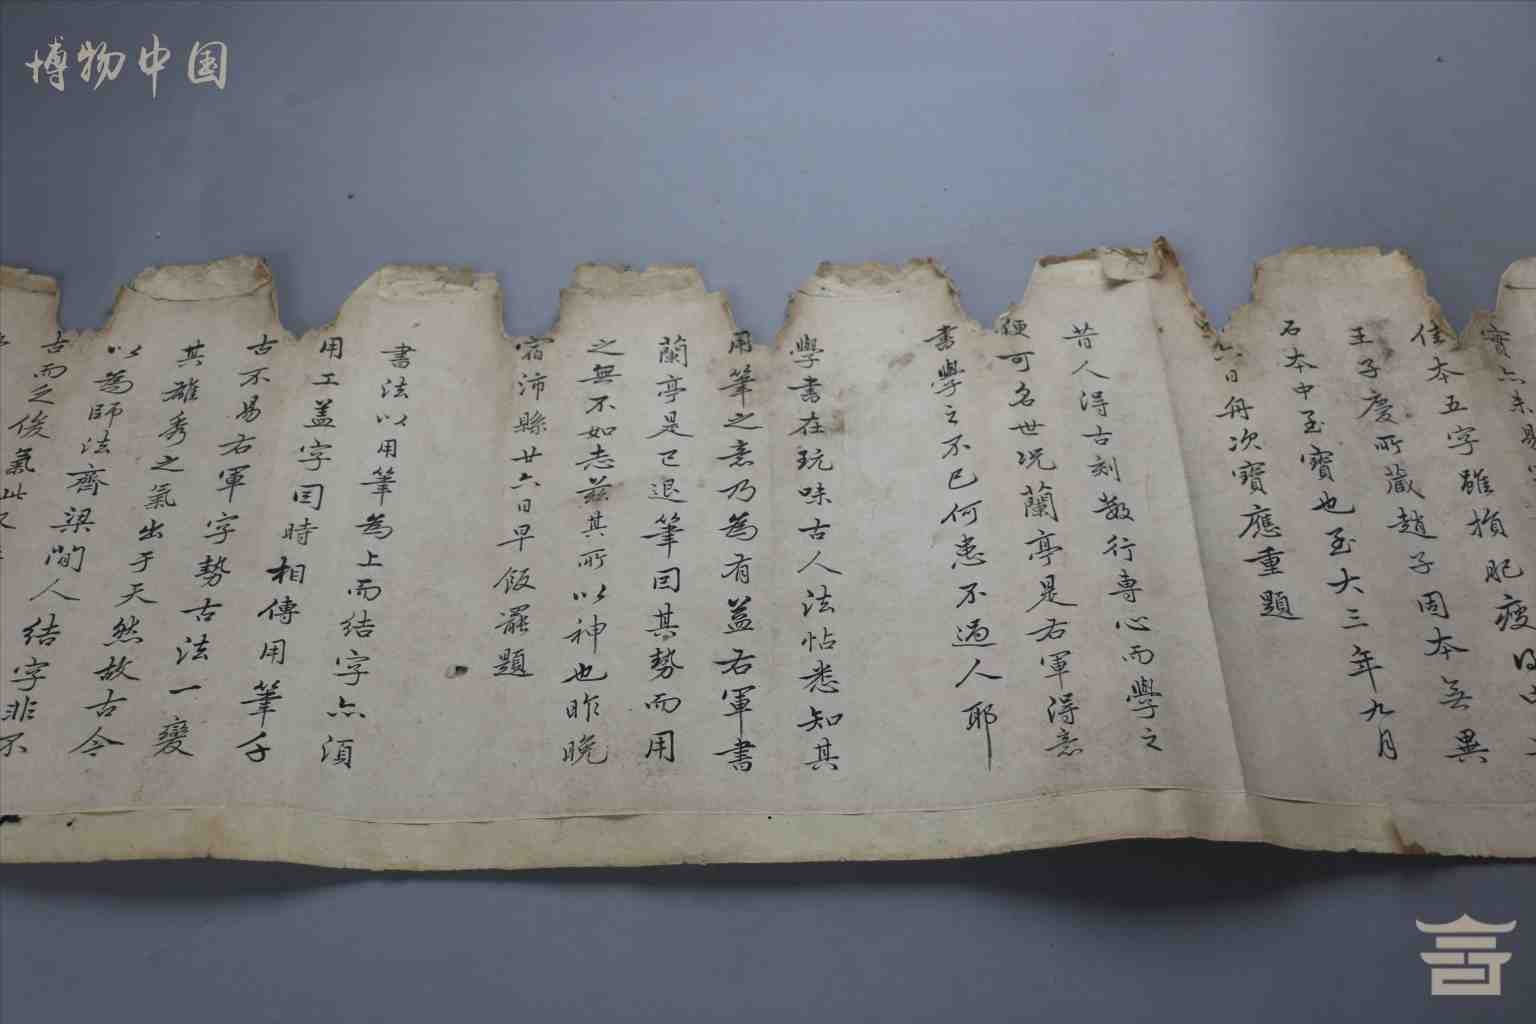 博物中国
佳本五字雖損肥瘦
王子慶所藏趙子固本無異
石本中至寶也至大三年九月
六日舟次寶應重題
昔人得古刻數行專心而學之
便可名世况蘭亭是右軍得意
書學之不已何患不過人耶
學書在玩味古人法帖悉知其
用筆之意乃為有益右軍書
蘭亭是已退筆因其勢而用
之無不如志兹其所以神也昨晚
宿沛縣廿六日早飯罷題
書法以用筆為上而结字亦須
用工盖字因時相傳用筆千
古不易右軍字勢古法一變
其雄秀之氣出于天然故古今
以為師法齊梁間人结字非不
古而乏俊氣此又